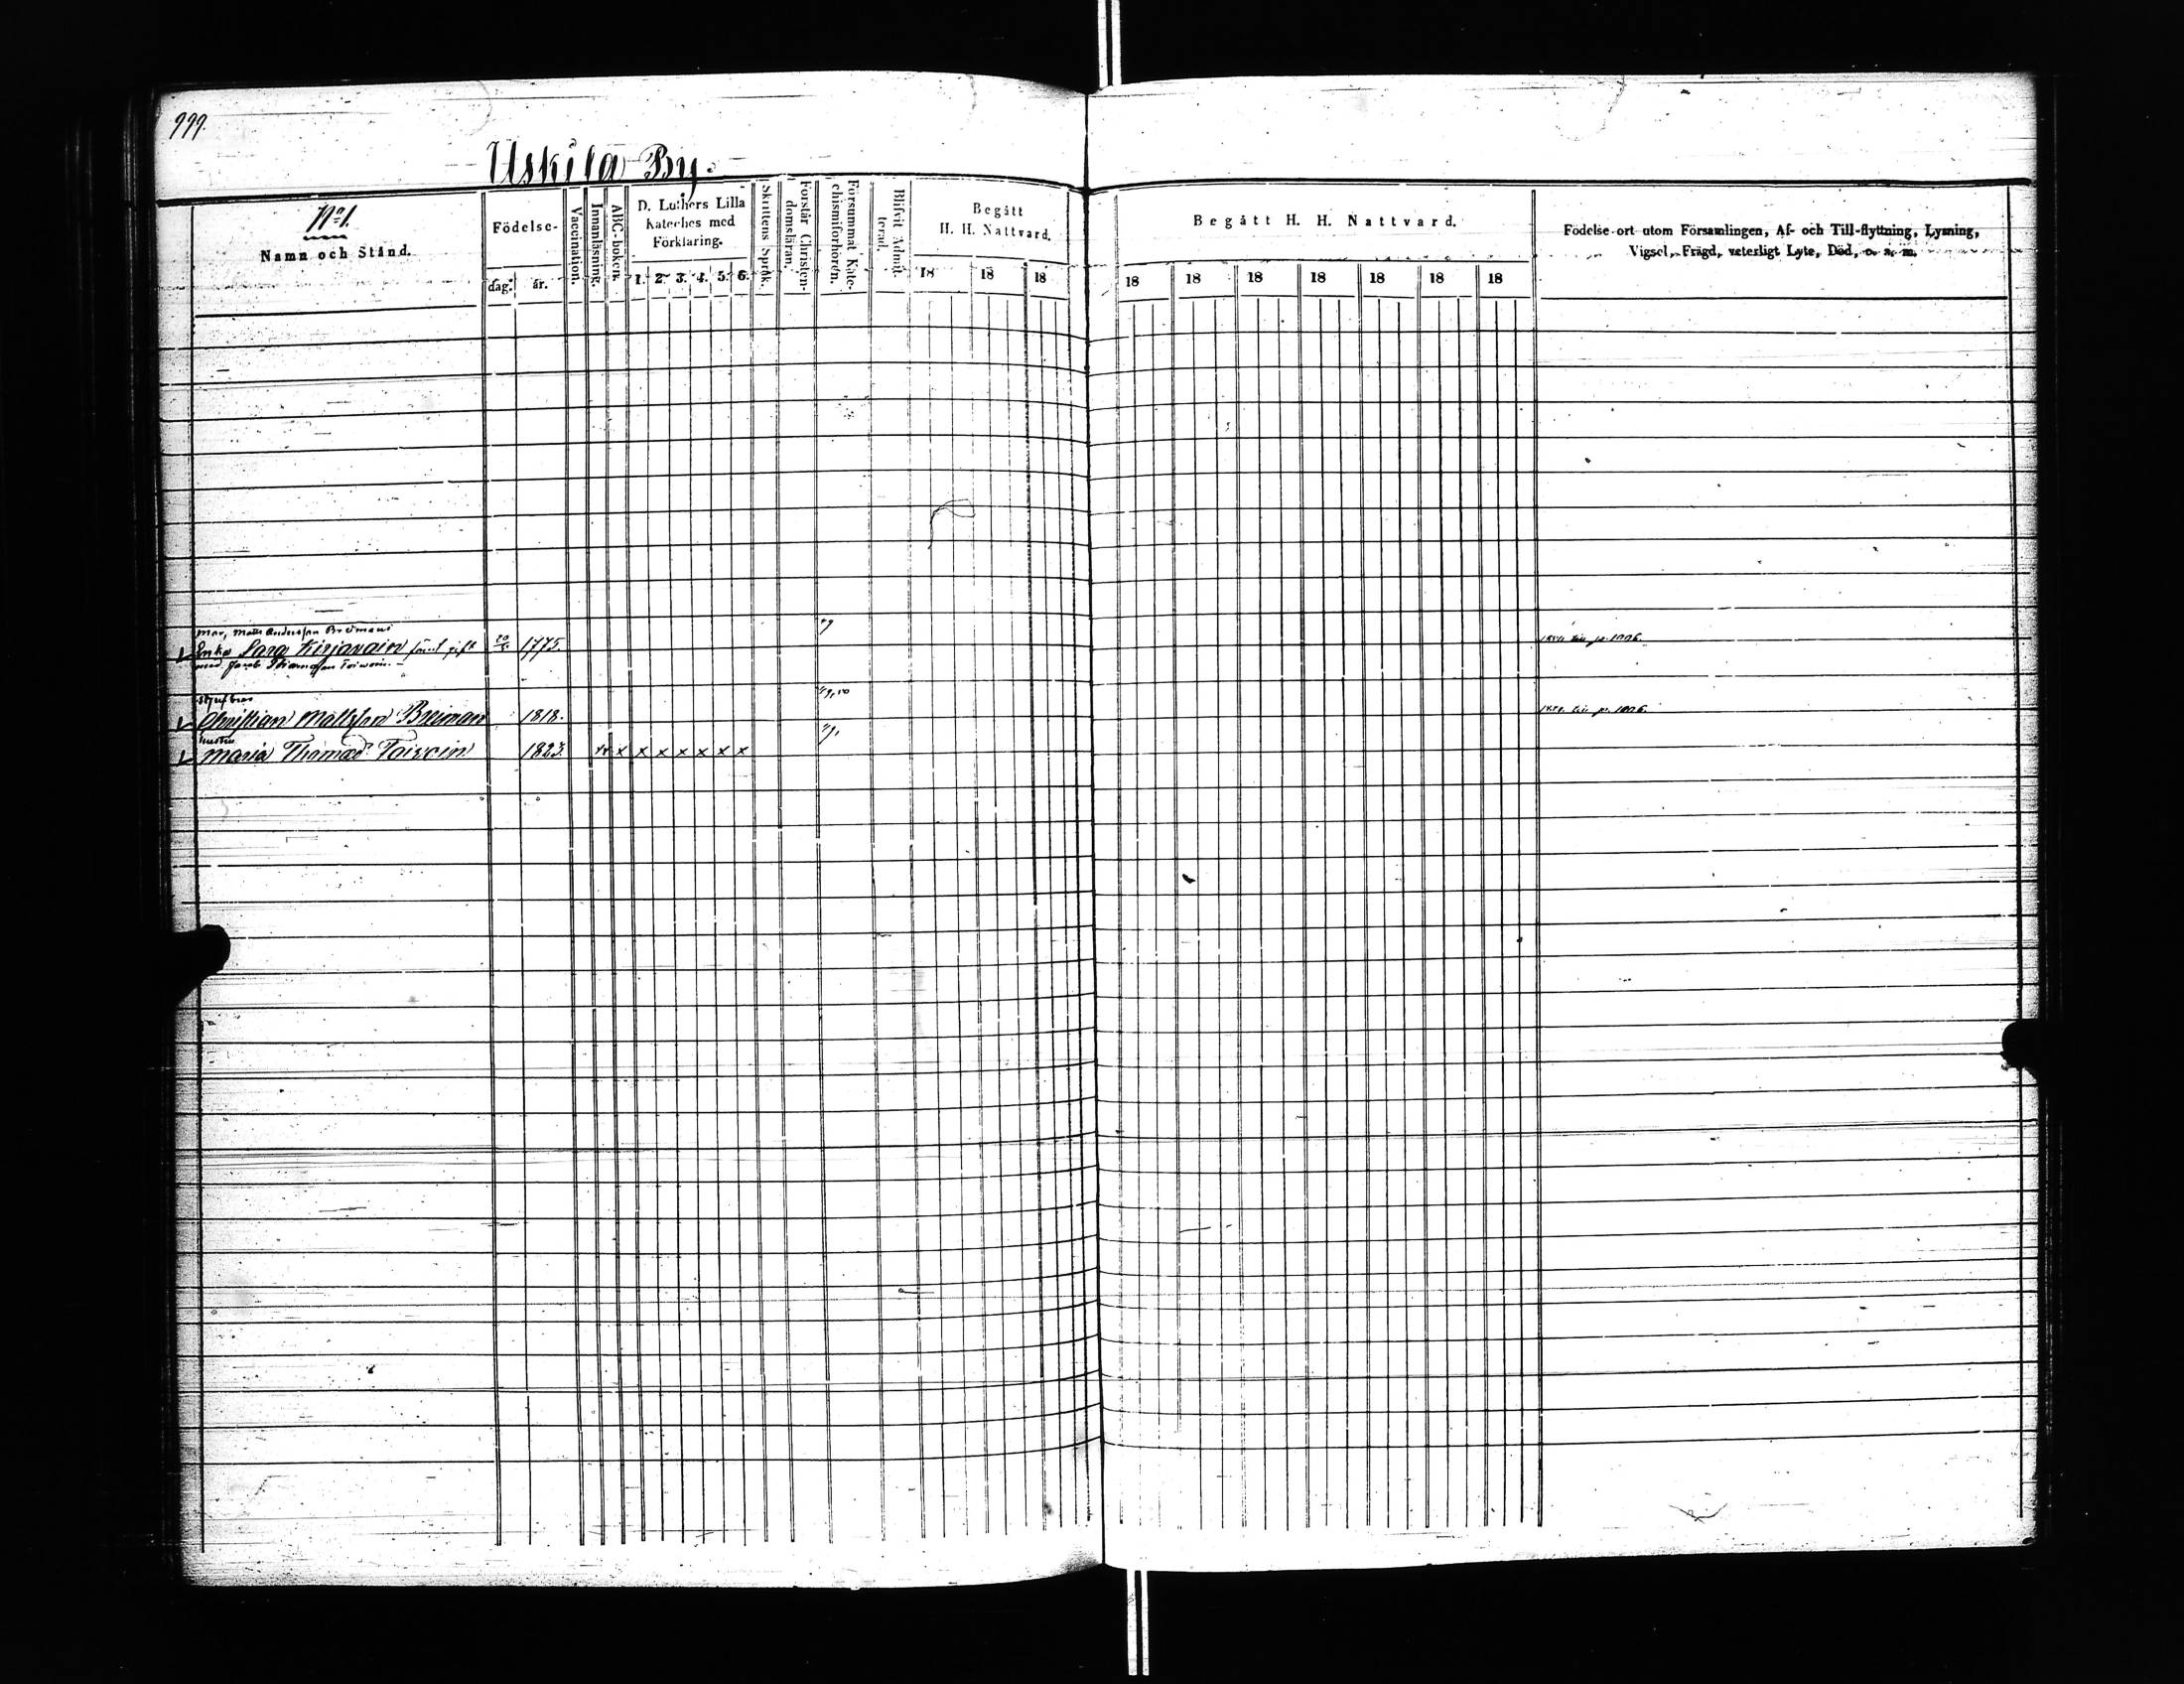 999.
Uskila By.
No 1.
Namn och Stånd.
Födelse-
dag.
år.
Vaccination.
Innanläsning.
ABC-boken.
D. Luthers Lilla
Kateches med
Förklaring.
1. 2. 3. 4. 5. 6.
Skriftens Språk.
Förstår Christen-
domsläran.
Försummat Kate-
chismiförhören.
Blifvit Admit-
terad.
Begått
H. H. Nattvard.
18 18 18
Begått H. H. Nattvard.
18 18 18 18 18 18 18
Födelse-ort utom Församlingen, Af- och Till-flyttning, Lysning,
Vigsel, Frägd, veterligt Lyte, Död, o. s. m.
Matts Andersson
Enka Sara Kirjavain gift 1775.
med Jacob Toiwoin.
Christian Mattsson Breiman 1818.
hustru
Maria Thomasd. Toivoin 1823. x x x x x x x